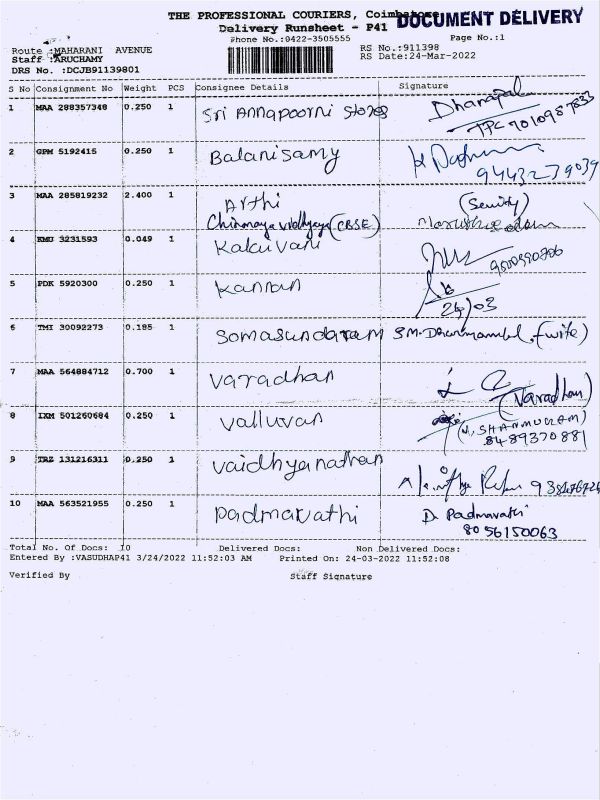 THE PROFESSIONAL COURIERS, Coimbatore
DOCUMENT DELIVERY
Delivery Runsheet - P41
Phone No.:0422-3505555
Page No.:1
Route :MAHARANI AVENUE
RS No.:911398
Staff :ARUCHAMY
RS Date:24-Mar-2022
DRS No. :DCJB91139801
S No Consignment No Weight PCS Consignee Details Signature
1 MAA 288357348 0.250 1 Sri Annapoorni Stores Dhanapal
2 GPM 5192415 0.250 1 Balanisamy
9443239039
3 MAA 285819232 2.400 1 Arthi
Chinmaya Vidhyaya (CBSE)
4 KMU 3231593 0.049 1 Kalaivani
5 PDK 5920300 0.250 1 Kannan
24/03
6 TMI 30092273 0.185 1 Somasundaram S.M. Dharmambal (wife)
7 MAA 564884712 0.700 1 Varadhan
(Varadhan)
8 IXM 501260684 0.250 1 Valluvan
SHANMUGAM)
8489370881
9 TRZ 131216311 0.250 1 Vaidhyanathan
10 MAA 563521955 0.250 1 Padmavathi D. Padmavathi
8056150063
Total No. Of Docs: 10 Delivered Docs: Non Delivered Docs:
Entered By :VASUDHAP41 3/24/2022 11:52:03 AM Printed On: 24-03-2022 11:52:08
Verified By Staff Signature